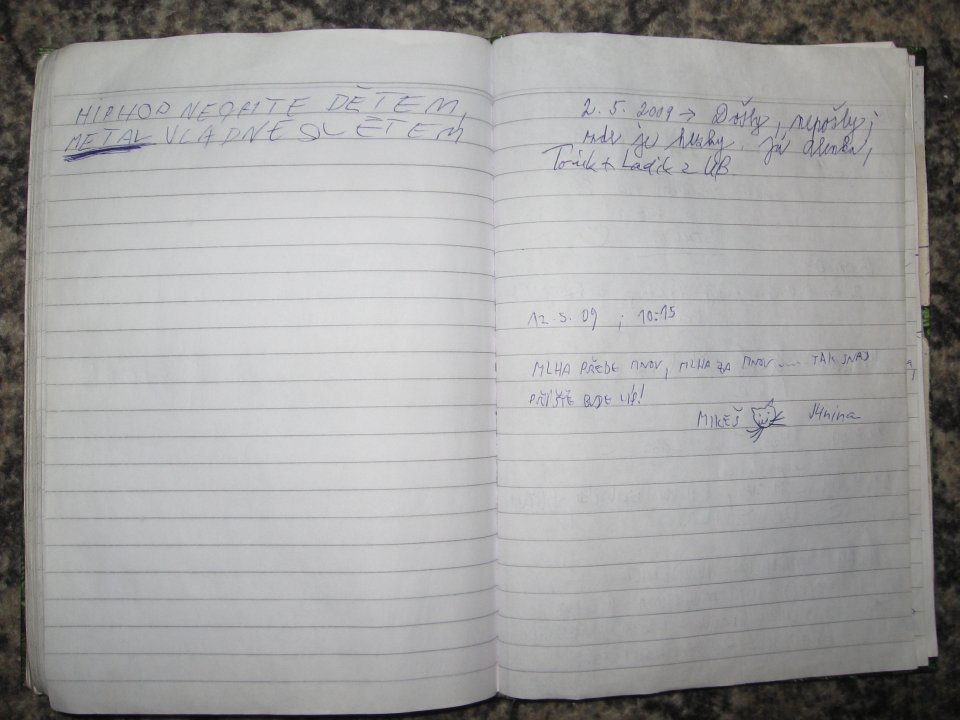 HIPHOP NECHTE DĚTEM,
METAL VLÁDNE SVĚTEM
2. 5. 2009 → Došly, nepošly;
je hluby. já
Toník + Ladík z UB
12. 5. 09 ; 10:15
MLHA PŘEDE MNOV, MLHA ZA MNOV .... TAK SNAD
PŘÍŠTĚ BUDE LÍP!
MIKEŠ J4nina